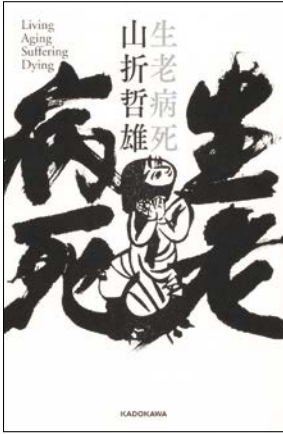 Living
Aging
Suffering
Dying
生老病死
山折哲雄
生老
病死
KADOKAWA